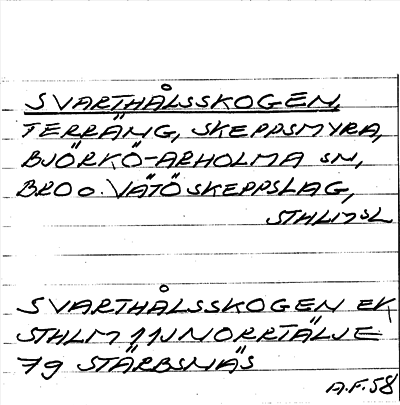 SVARTHÅLSSKOGEN,
TERRÄNG, SKEPPSMYRA,
BJÖRKÖ-ARHOLMA SN,
BRO O. VÄTÖ SKEPPSLAG,
STHLMSL
SVARTHÅLSSKOGEN EK
STHLM 11J NORRTÄLJE
7g STÄRBSNÄS
A.F. 58